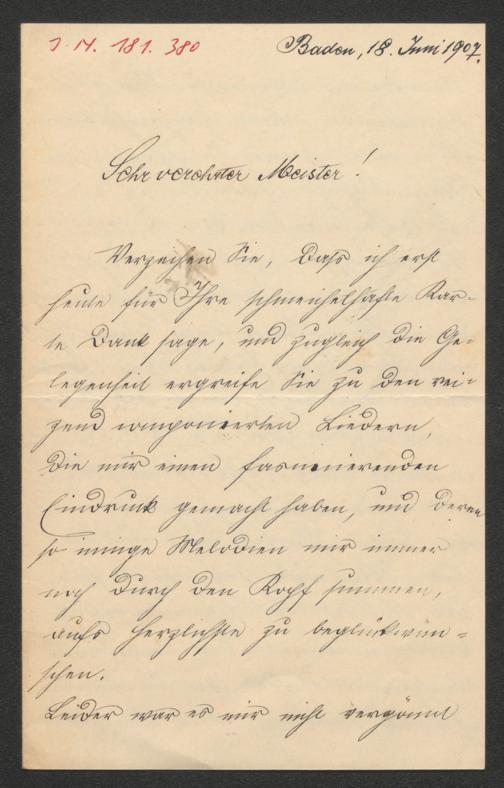 J. N. 181.380
Baden, 18. Juni 1907.
Sehr verehrter Meister!
Verzeihen Sie, daß ich erst
heute für Ihre schmeichelhafte Kar-
te Dank sage, und zugleich die Ge-
legenheit ergreife Sie zu den rei-
zend componierten Liedern,
die mir einen fascinierenden
Eindruck gemacht haben, und deren
so innige Melodien mir immer
noch durch den Kopf summen,
aufs herzlichste zu beglückwün-
schen.
Leider war es mir nicht vergönnt